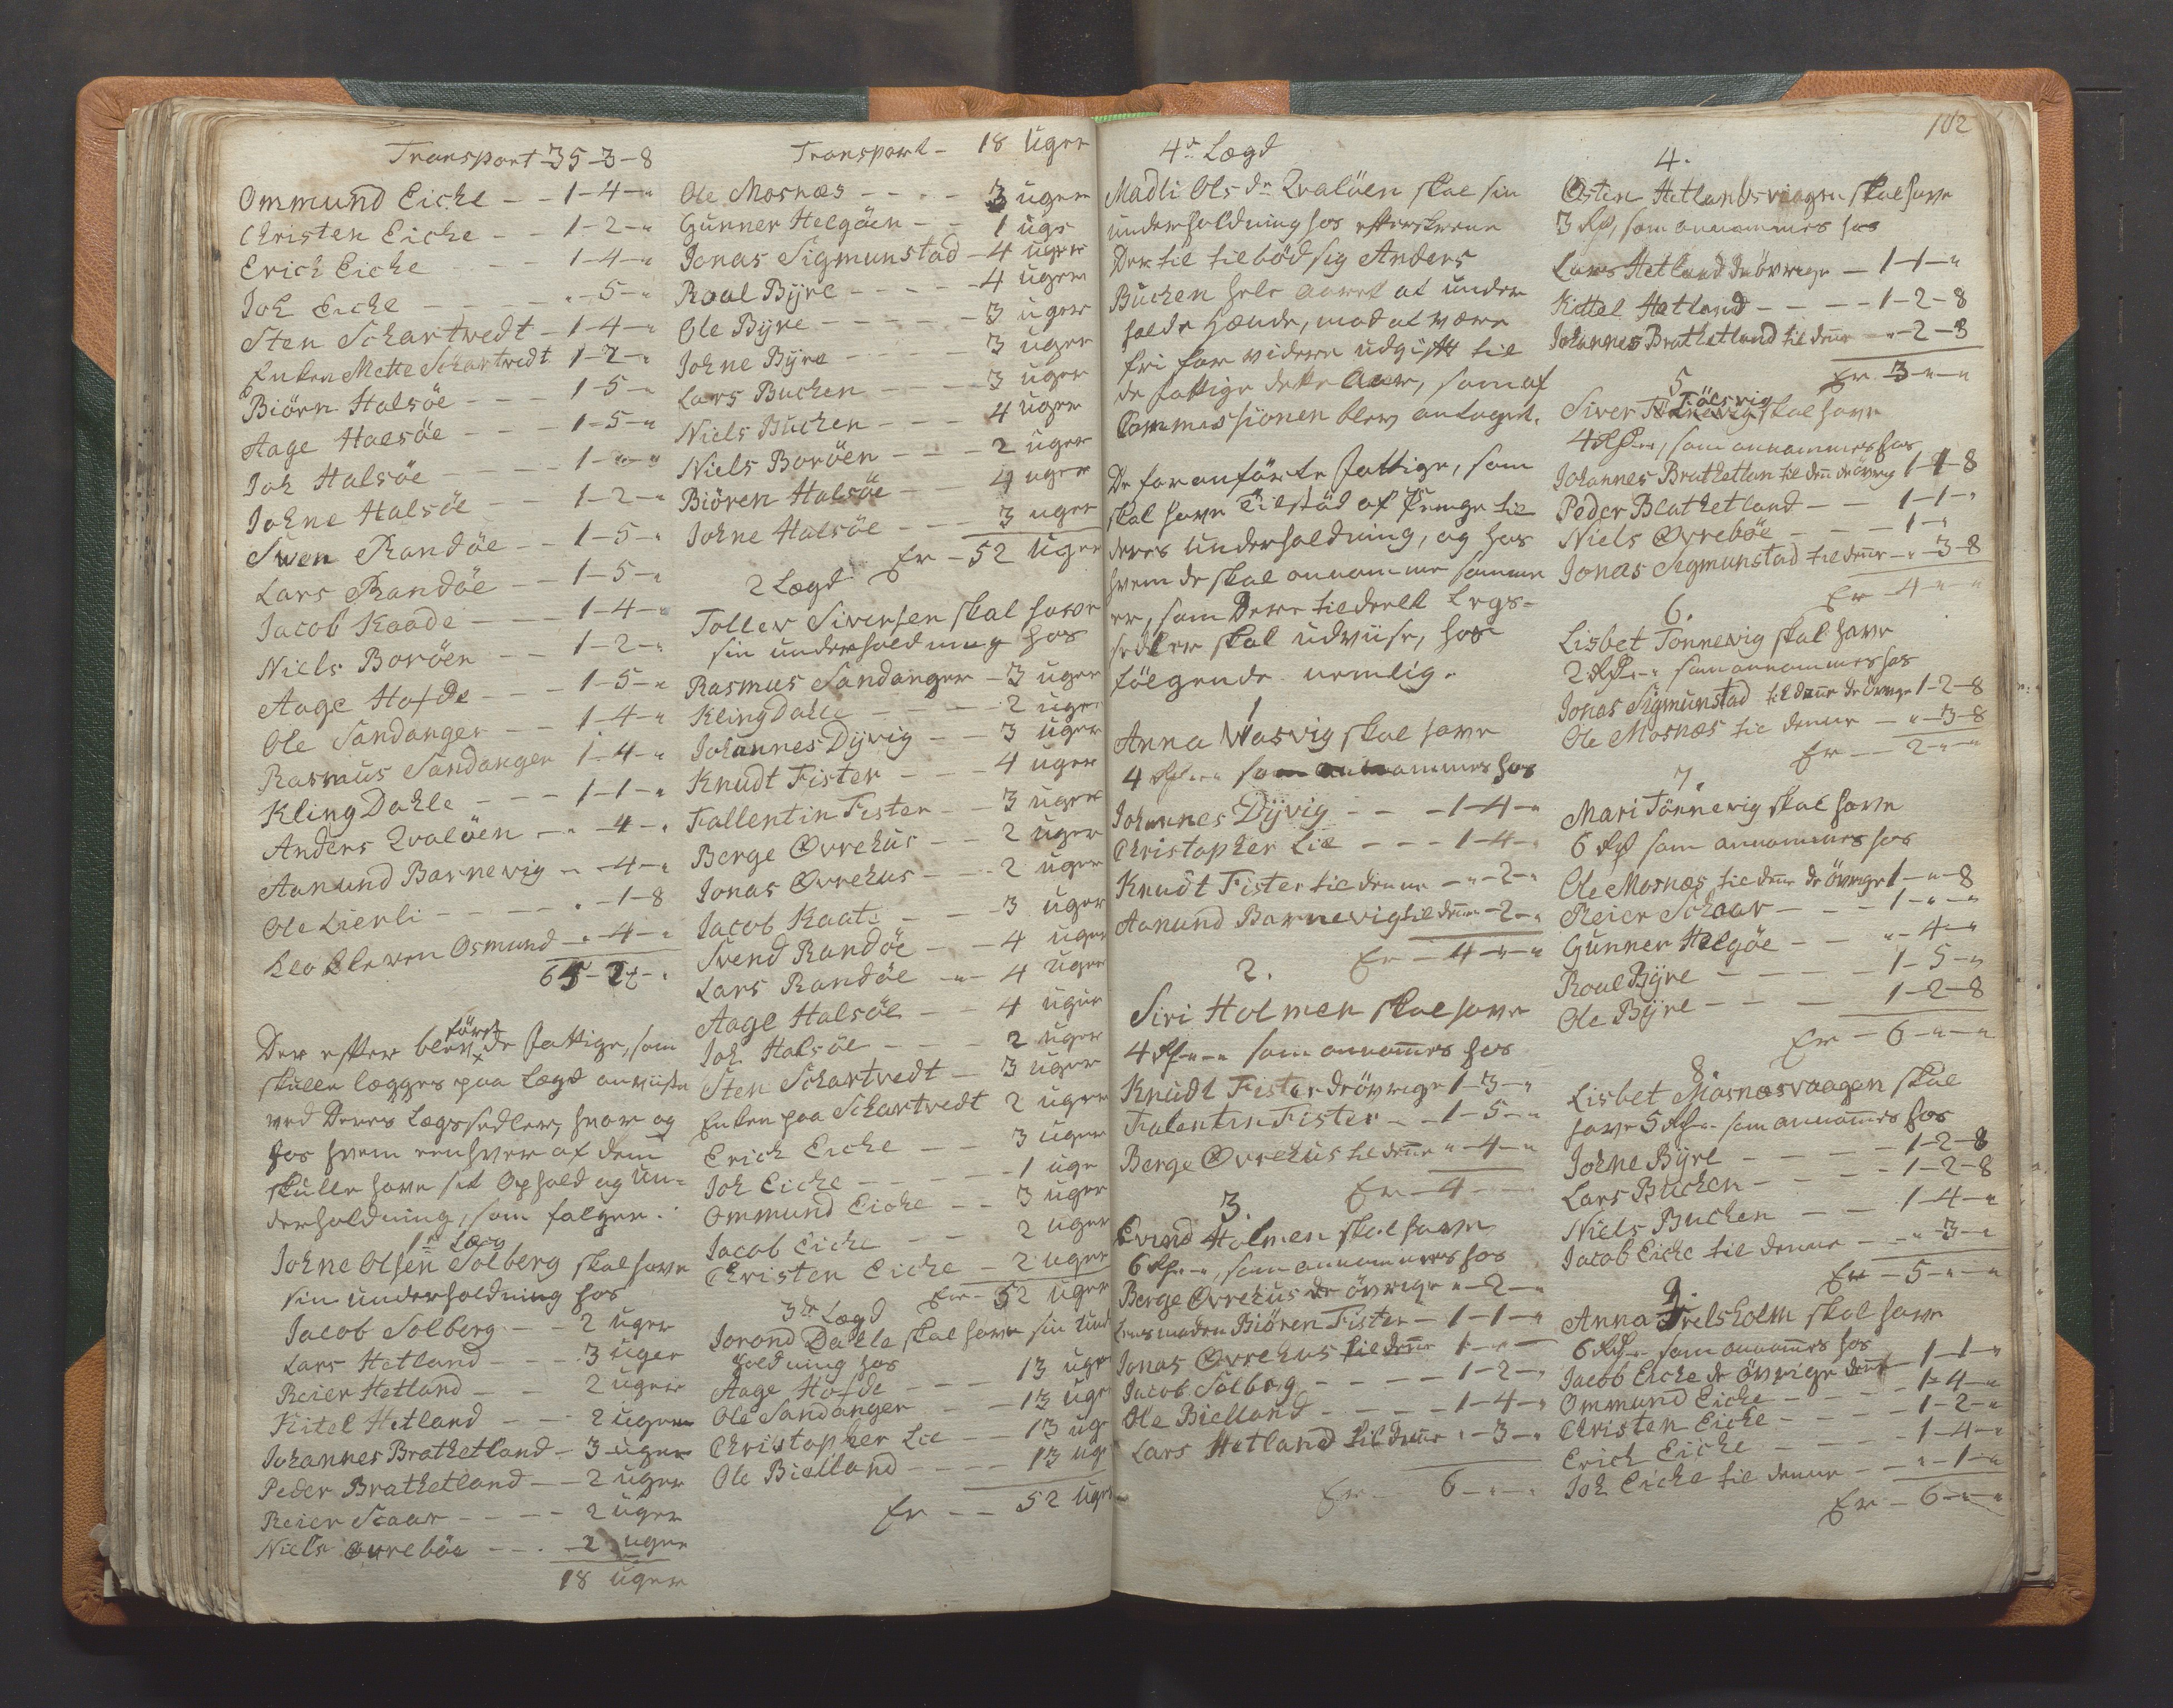 Transport 35-3-8
Ommund Eiche - - 1-4-"
Christen Eiche - - 1-2-"
Erich Eiche - - 1-4-"
Joh Eiche - - - "-5-"
Sten Schartvedt - 1-4-"
Enken Mette Schartvedt 1-2-"
Biörn Halsöe - - - 1-5-"
Aage Halsöe - - - 1-5-"
Joh Halsöe - - - 1-"-"
Johne Halsöe - - 1-2-"
Swen Randöe - - 1-5-"
Lars Randöe - - 1-5-"
Jacob Kaade - - - 1-4-"
Niels Boröen - - 1-2-"
Aage Hofde - - - 1-5-"
Ole Sandanger - - 1-4-"
Rasmus Sandanger 1-4-"
Kling Dahle - - - 1-1-"
Anders Qvalöen - "-4-"
Aanund Barnevig - "-4-"
Ole Lierli - - - "-1-8
Osmund - "-4-"
Der efter blev först de Fattige, som
skulle lægges paa Lægd anviiste
ved Deres Lægssedler, hvor og
hos hvem eenhver af dem
skulle have sit Ophold og Un-
derholdning, som følger:
1te Læg
Johne Olsen Solberg skal have
sin underholdning hos
Jacob Solberg - - 2 uger
Lars Hetland - - - 3 uger
Reier Hetland - - 2 uger
Kitel Hetland - - - 2 uger
Johannes Brathetland - 3 uger
Peder Brathetland - - 2 uger
Reier Scaar - - - - 2 uger
Niels Øvreböe - - - 2 uger
18 uger
Transport - 18 Uger
Ole Mosnæs - - - - 3 uger
Gunner Helgöen - - 1 uge
Jonas Sigmunstad - 4 uger
Roal Byre - - - - 4 uger
Ole Byre - - - - - 3 uger
Johne Byre - - - - 3 uger
Lars Buchen - - - - 3 uger
Niels Buchen - - - 4 uger
Niels Boröen - - - 2 uger
Biören Halsöe - - 4 uger
Johne Halsöe - - - 3 uger
Er - 52 Uger
2 Lægd
Tollev Siversen skal have
sin underholdning hos
Rasmus Sandanger - 3 uger
Kling Dalle - - - - 2 uger
Johannes Dyvig - - 3 uger
Knudt Fister - - - 4 uger
Fallentin Fister - - 3 uger
Berge Øvrehus - - 2 uger
Jonas Øvrehus - - 2 uger
Jacob Kaate - - - 3 uger
Svend Randöe - - 4 uger
Lars Randöe - - 4 uger
Aage Halsöe - - 4 uger
Joh. Halsöe - - - 2 uger
Sten Schartvedt - 3 uger
Enken paa Schartvedt 2 uger
Erich Eiche - - 3 uger
Joh Eiche - - - - 1 uge
Ommund Eiche - - 3 uger
Jacob Eiche - - - 2 uger
Christen Eiche - - 2 uger
Er - 52 uger
3de Lægd
Jorond Dalle skal have sin und
holdning hos
Aage Hofde - - - 13 uger
Ole Sandanger - - - 13 uger
Christopher Lie - - 13 ug
Ole Bielland - - - - 13 ug
Er - - 52 uger
102
4de Lægd
Madli Olsdr Qvalöen skal sin
underholdning hos efterskrevne
Der til tilbød sig Anders
Buchen hele aaret at under
holde Hende, mod at være
fri for videre udgift til
de fattige dette Aar, som af
Commissionen blev antaget.
De foranførte Fattige, som
skal have Tilskud af Penge til
deres Underholdning, og hos
hvem de skal annamme samme
er, som Dere tildeelt Legs-
sedler skal udviise, hos
følgende nemlig.
1
Anna Wasvig skal have
4 Rd-"-" som annammes hos
Johannes Dyvig - - - 1-4-"
Christopher Lie - - - 1-4-"
Knudt Fister til denne - "-2-"
Aanund Barnevig til denne - 2-"
Er - 4-"-"
2.
Siri Holmen skal have
4 Rd-"-" som annames hos
Knudt Fister de övrige 1-3-"
Falentin Fister - - 1-5-"
Berge Øvrehus til denne "-4-"
Er - 4 - -
3.
Evind Holmen skal have
6 Rd-"-", som annammes hos
Berge Øvrehus de övrige "-2-"
Lensmanden Biören Fister - 1-1-"
Jonas Øvrehus til denne 1-"-
Jacob Solberg - - - - 1-2-"
Ole Bielland - - - - 1-4-"
Lars Hetland til denne "-3-"
Er - 6-"-"
4.
Østen Hetlandsvaagen skal have
3 Rd, som annammes hos
Lars Hetland de övrige - 1-1-"
Kittel Hetland - - - - 1-2-8
Johannes Brathetland til denne - "-2-8
Er 3-"-"
5
Siver Tölsvig skal have
4 Rd-"-", som annammes hos
Johannes Brathetlan til den de övrig 1-1-8
Peder Brathetland - - 1-1-"
Niels Øvreböe - - - 1-"
Jonas Sigmunstad til denne - "-3-8
Er 4-"-"
6.
Lisbet Tönnevig skal have
2 Rd-"-" som annammes hos
Jonas Sigmunstad til denne de övrige 1-2-8
Ole Mosnæs til denne - "-3-8
Er - - 2-"-"
7.
Mari Tönnevig skal have
6 Rd som annammes hos
Ole Mosnæs til denne de övrige 1-"-8
Reier Schaar - - - 1-"-"
Gunner Helgöe - - "-4-"
Roal Byre - - - - 1-5-"
Ole Byre - - - 1-2-8
Er - 6-"-"
8.
Lisbet Mosnæsvaagen skal
have 5 Rd-"- som annames hos
Johne Byre - - - - 1-2-8
Lars Buchen - - - - 1-2-8
Niels Buchen - - 1-4-"
Jacob Eiche til denne - - "-3-"
Er - 5-"-"
9.
Anna Frelsholm skal have
6 Rd-"- som annames hos
Jacob Eiche de övrige denne 1-1-"
Ommund Eiche - - - - 1-4-"
Christen Eiche - - - - 1-2-"
Erich Eiche - - - - 1-4-"
Joh Eiche til denne - - "-1-"
Er - 6-"-"